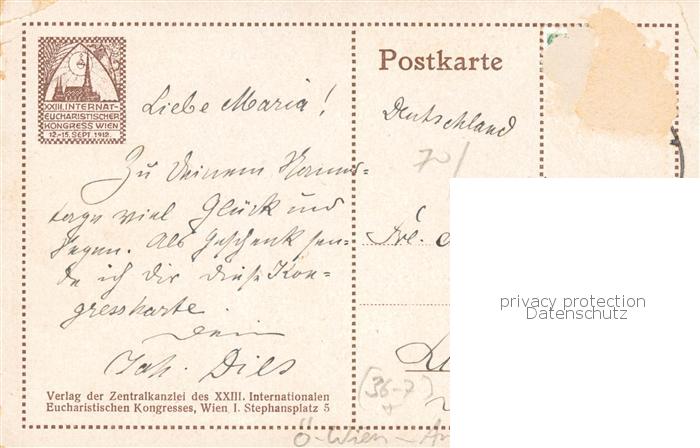 XXIII. INTERNAT.
EUCHARISTISCHER
KONGRESS WIEN
12.-15. SEPT. 1912.
Liebe Maria!
Zu Deinem Namens-
tage viel Glück und
Segen. Als Geschenk sen-
de ich dir diese Kon-
gresskarte.
Dein
Joh. Diels
Verlag der Zentralkanzlei des XXIII. Internationalen
Eucharistischen Kongresses, Wien I. Stephansplatz 5
Postkarte
Deutschland
70/
Frl.
privacy protection
Datenschutz
(36-7)
Ö-Wien